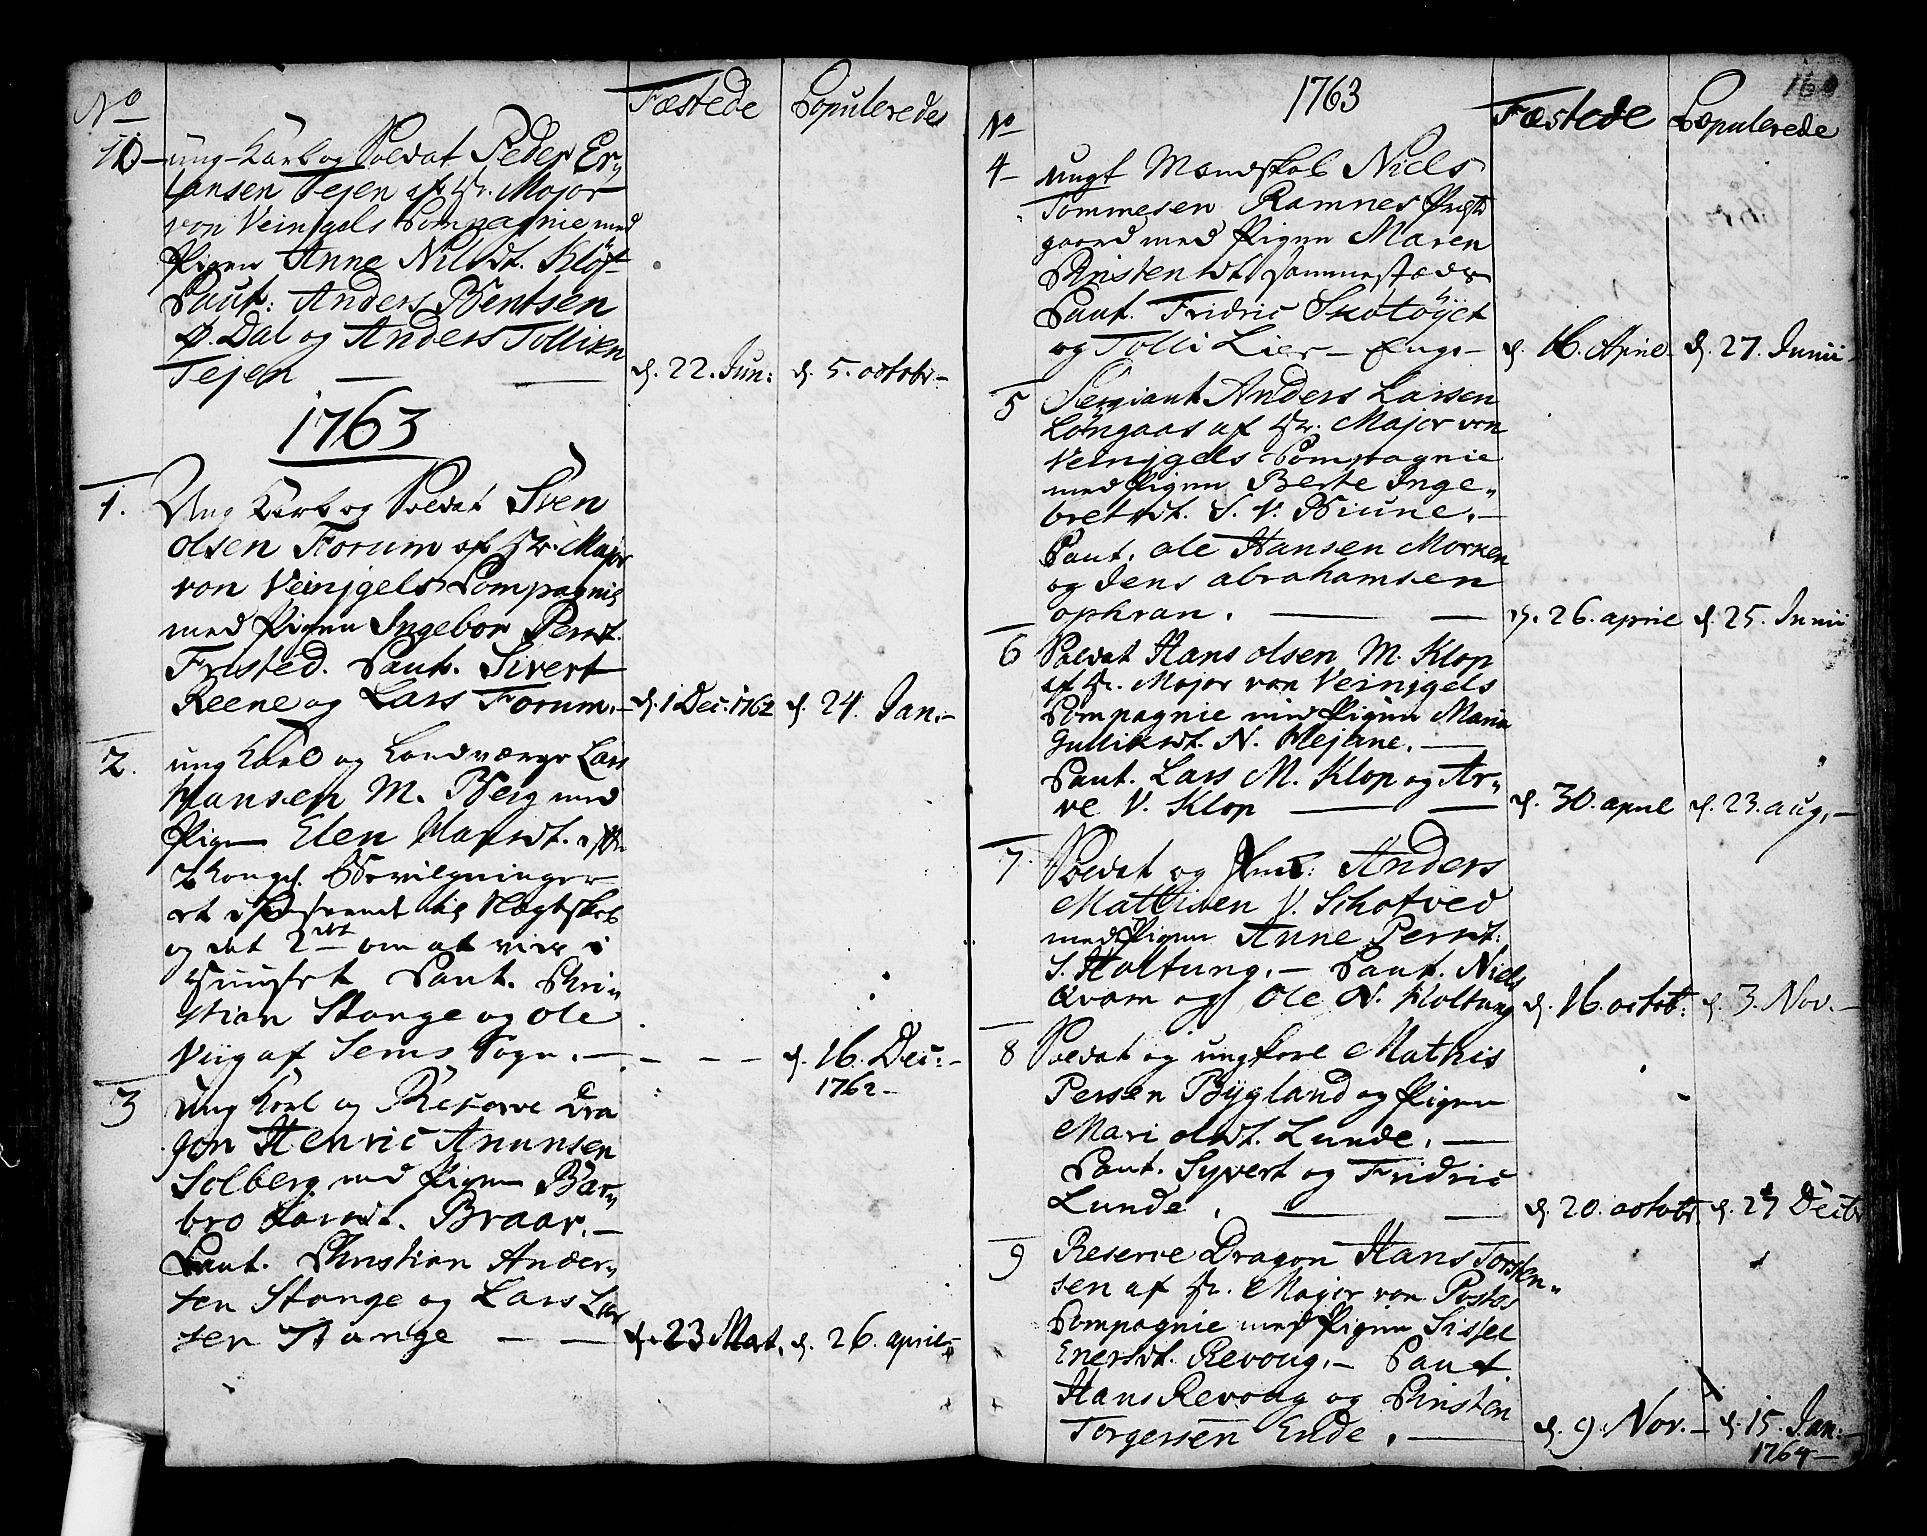 No Fæstede Copulerede
10 – ung Karl og Soldat Peder Er-
lansen Tejen af Hr. Major
von Veinigels Compagnie med
Pigen Anne Nilsdt. Kløf-
Caut: Anders Bentsen
Ø. Dal og Anders Tolliksen
Tejen — — d. 22. Jun: d. 5. octobr.–
1763
1. Ung Karl og Soldat Sven
olsen Forum af Hr. Major
von Veinigels Compagnie
med Pigen Ingebor Persdt.
Fristed. Caut. Sivert
Reene og Lars Forum.– d. 1 Dec. 1762 d. 24. Jan.–
2. ung Karl og Landværge Lars
Hansen M. Berg med
Pigen Elen Hansdt. efter
2 Kongl. Bevilgninger
og det 2det om at vies i
Huuset Caut. Chri-
stian Stange og Ole
Viig af Sems Sogn. – – – – d. 16. Dec:–
1762–
3 ung Karl og Reserve Dra
gon Henric Anunsen
Solberg med Pigen Bar-
bro Larsdt. Braar.–
Caut. Christian Ander-
sen Stange og Lars Lar
sen Stange — — d. 23 Mart. d. 26. april–
160
1763
No Fæstede Copulerede
4– ungt Mandskab Niels
Tommesen Ramnes Præste
gaard med Pigen Maren
Christensdt. sammestæds
Caut. Fridric Skotöyet
og Tolli Lier – Enge – d. 16. April– d. 27. Junii–
5 Sergiant Anders Larsen
Löngaas af Hr. Major von
Veinigels Compagnie
med Pigen Berte Inge-
bretsdt. S. V. Biune.–
Caut. Ole Hansen Morken
og Jens abrahamsen
ophran. — — d. 26. april d. 25. Junii
6 Soldat Hans olsen M. Klop
af Hr. Major von Veinigels
Compagnie med Pigen Maria
Gulliksdt. N. Hejane.—
Caut. Lars M. Klop og Ar-
ve V. Klop — — d. 30. april d. 23. aug.–
7. Soldat og Anders
Mattisen V. Schotved
med Pigen Anne Persdt:
S. Holtung.– Caut. Niels
Qvam og Ole N. Holtung d. 16. octob: d. 3. Nov.–
8 Soldat og ungkarl Mathis
Persen Bÿgland og Pigen
Mari olsdt. Lunde.—
Caut. Syvert og Fridric
Lunde. — — d. 20. octobr. d. 27 Decbr
9 Reserve Dragon Hans Torsten-
sen af Hr. Major von Postes
Compagnie med Pigen Sissel
Enersdt. Revoug.– Caut.
Hans Revoug og Christen
Torgersen Ende. — d. 9. Nov.– d. 15. Jan:–
1764–